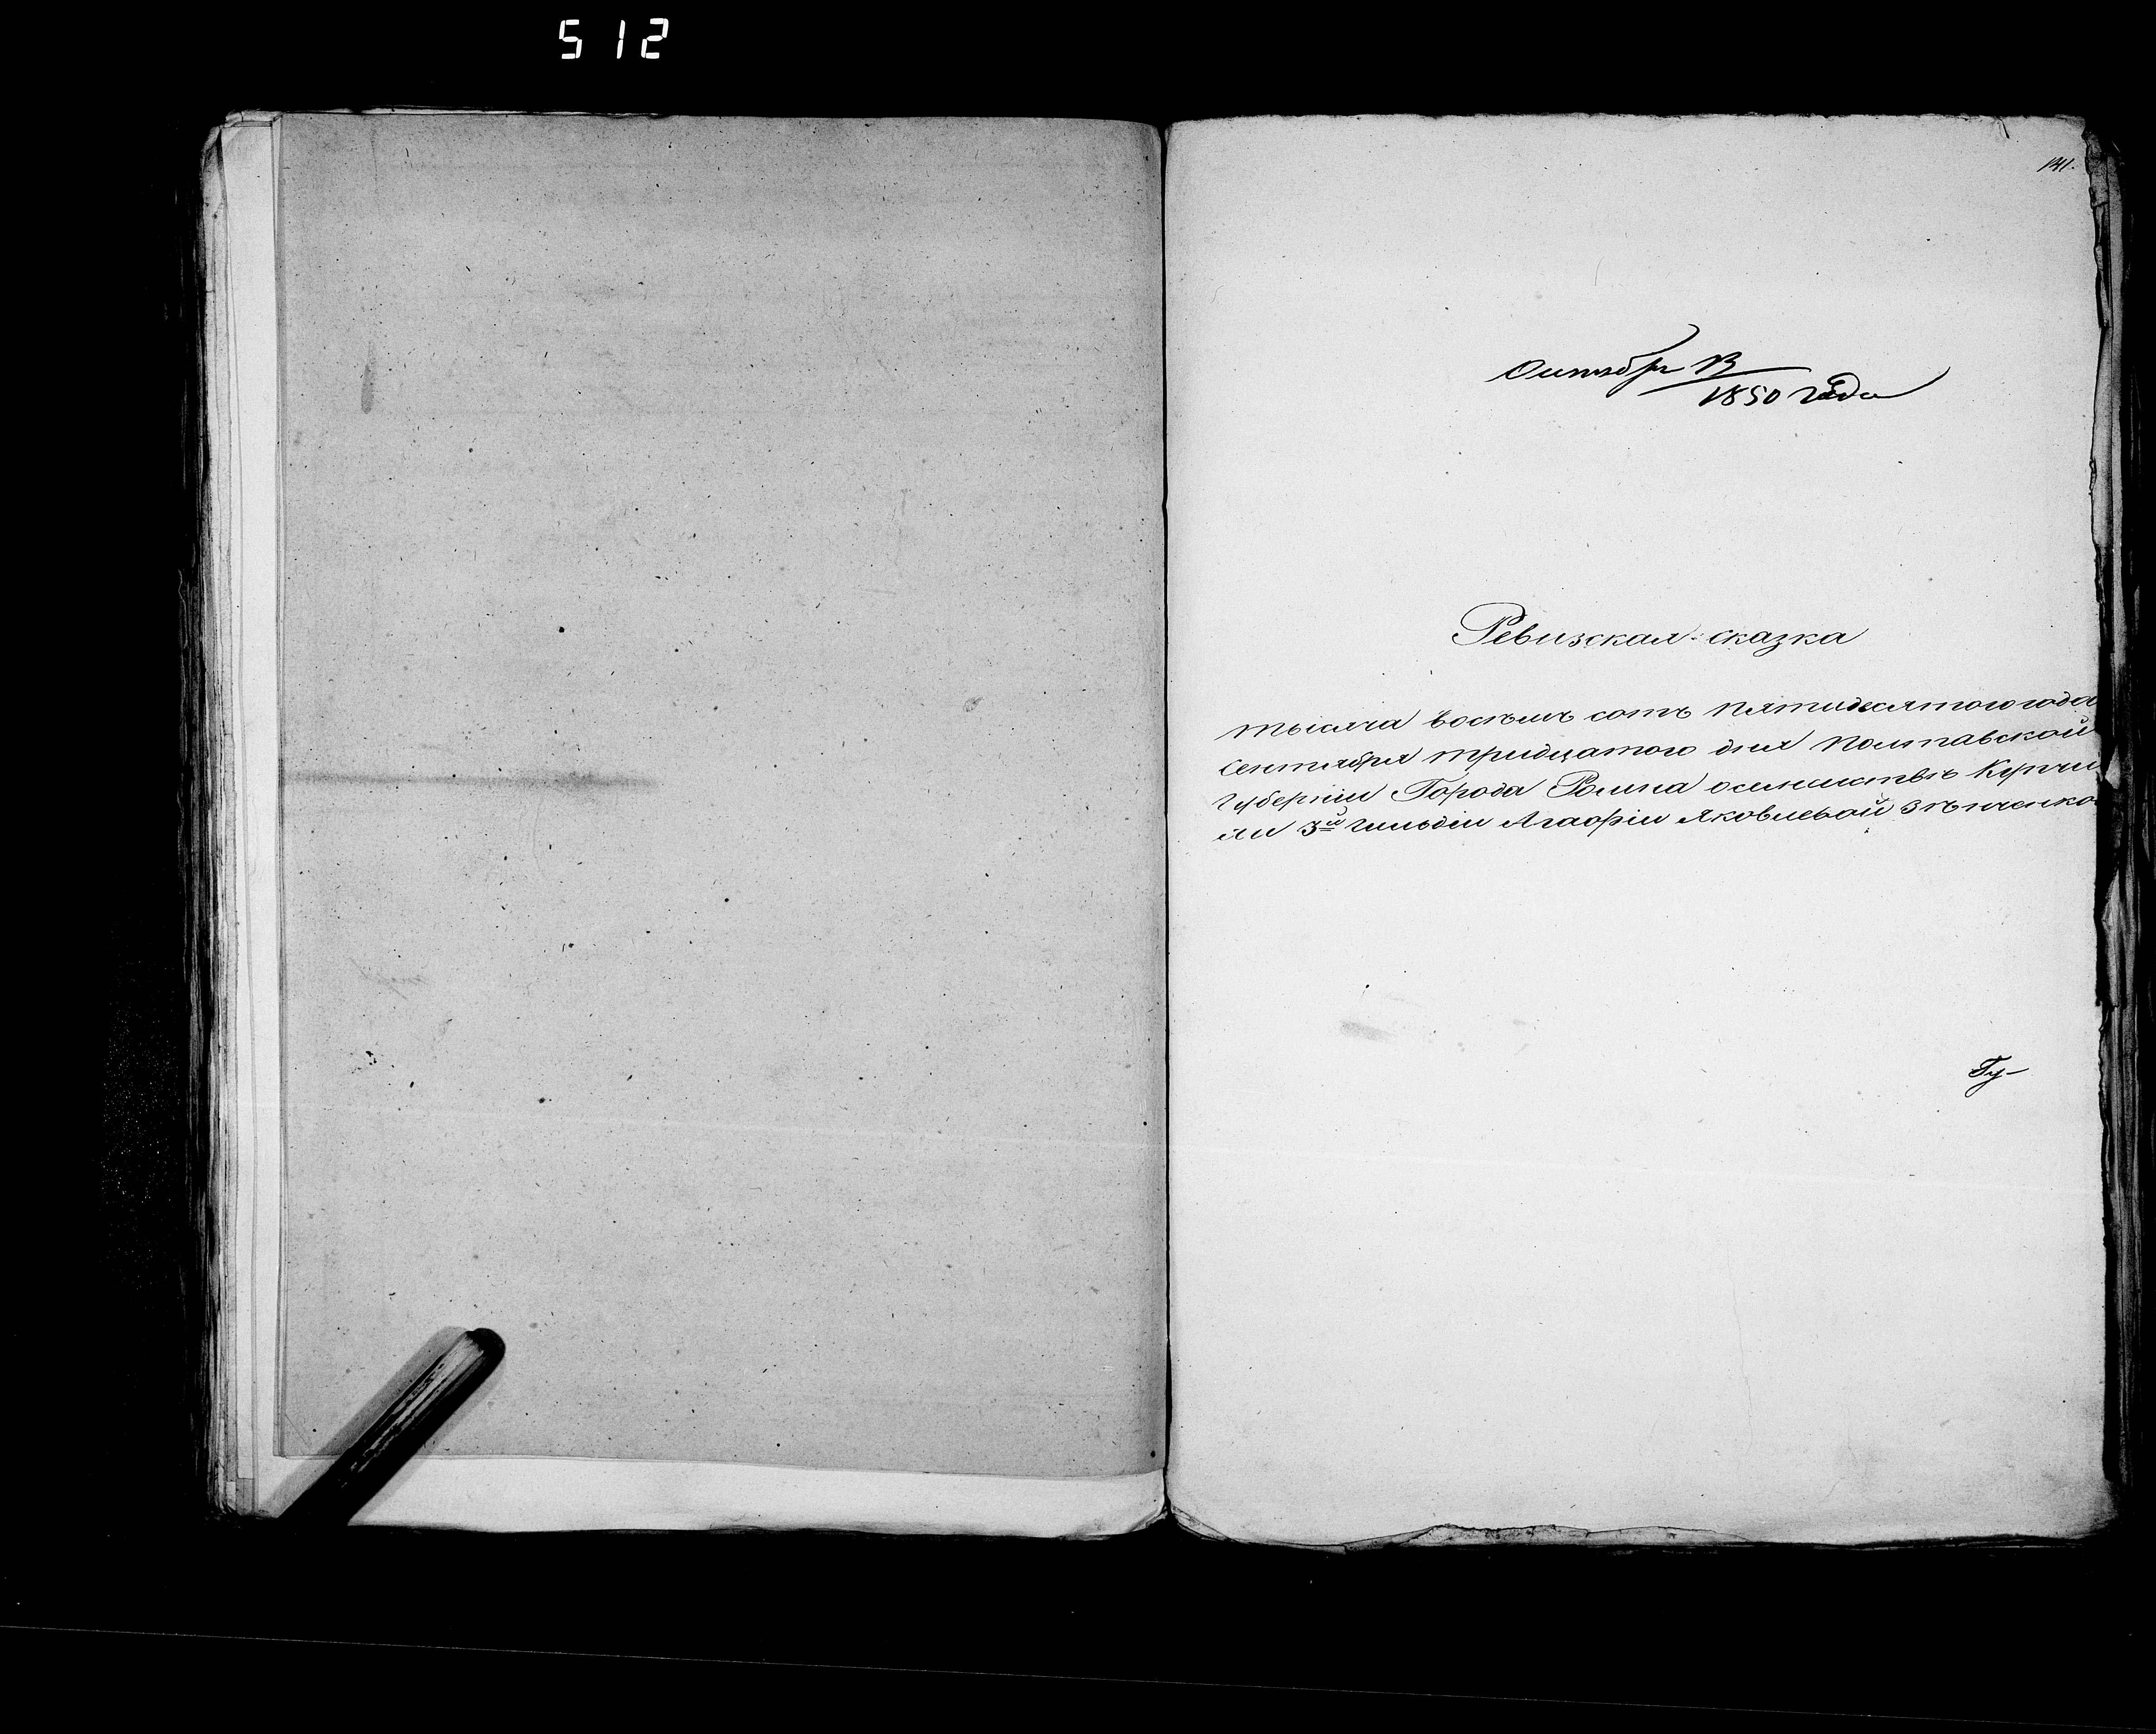 512
141.
Октября 13
1850 года
Ревизская сказка
тысяча восемь сотъ пятидесятого года
Сентября тридцатого дня Полтавской
Губерніи Города Ромна о семействѣ Купчи
хи 3й гильдіи Агафіи Яковлевой Зѣнченко
Гу-